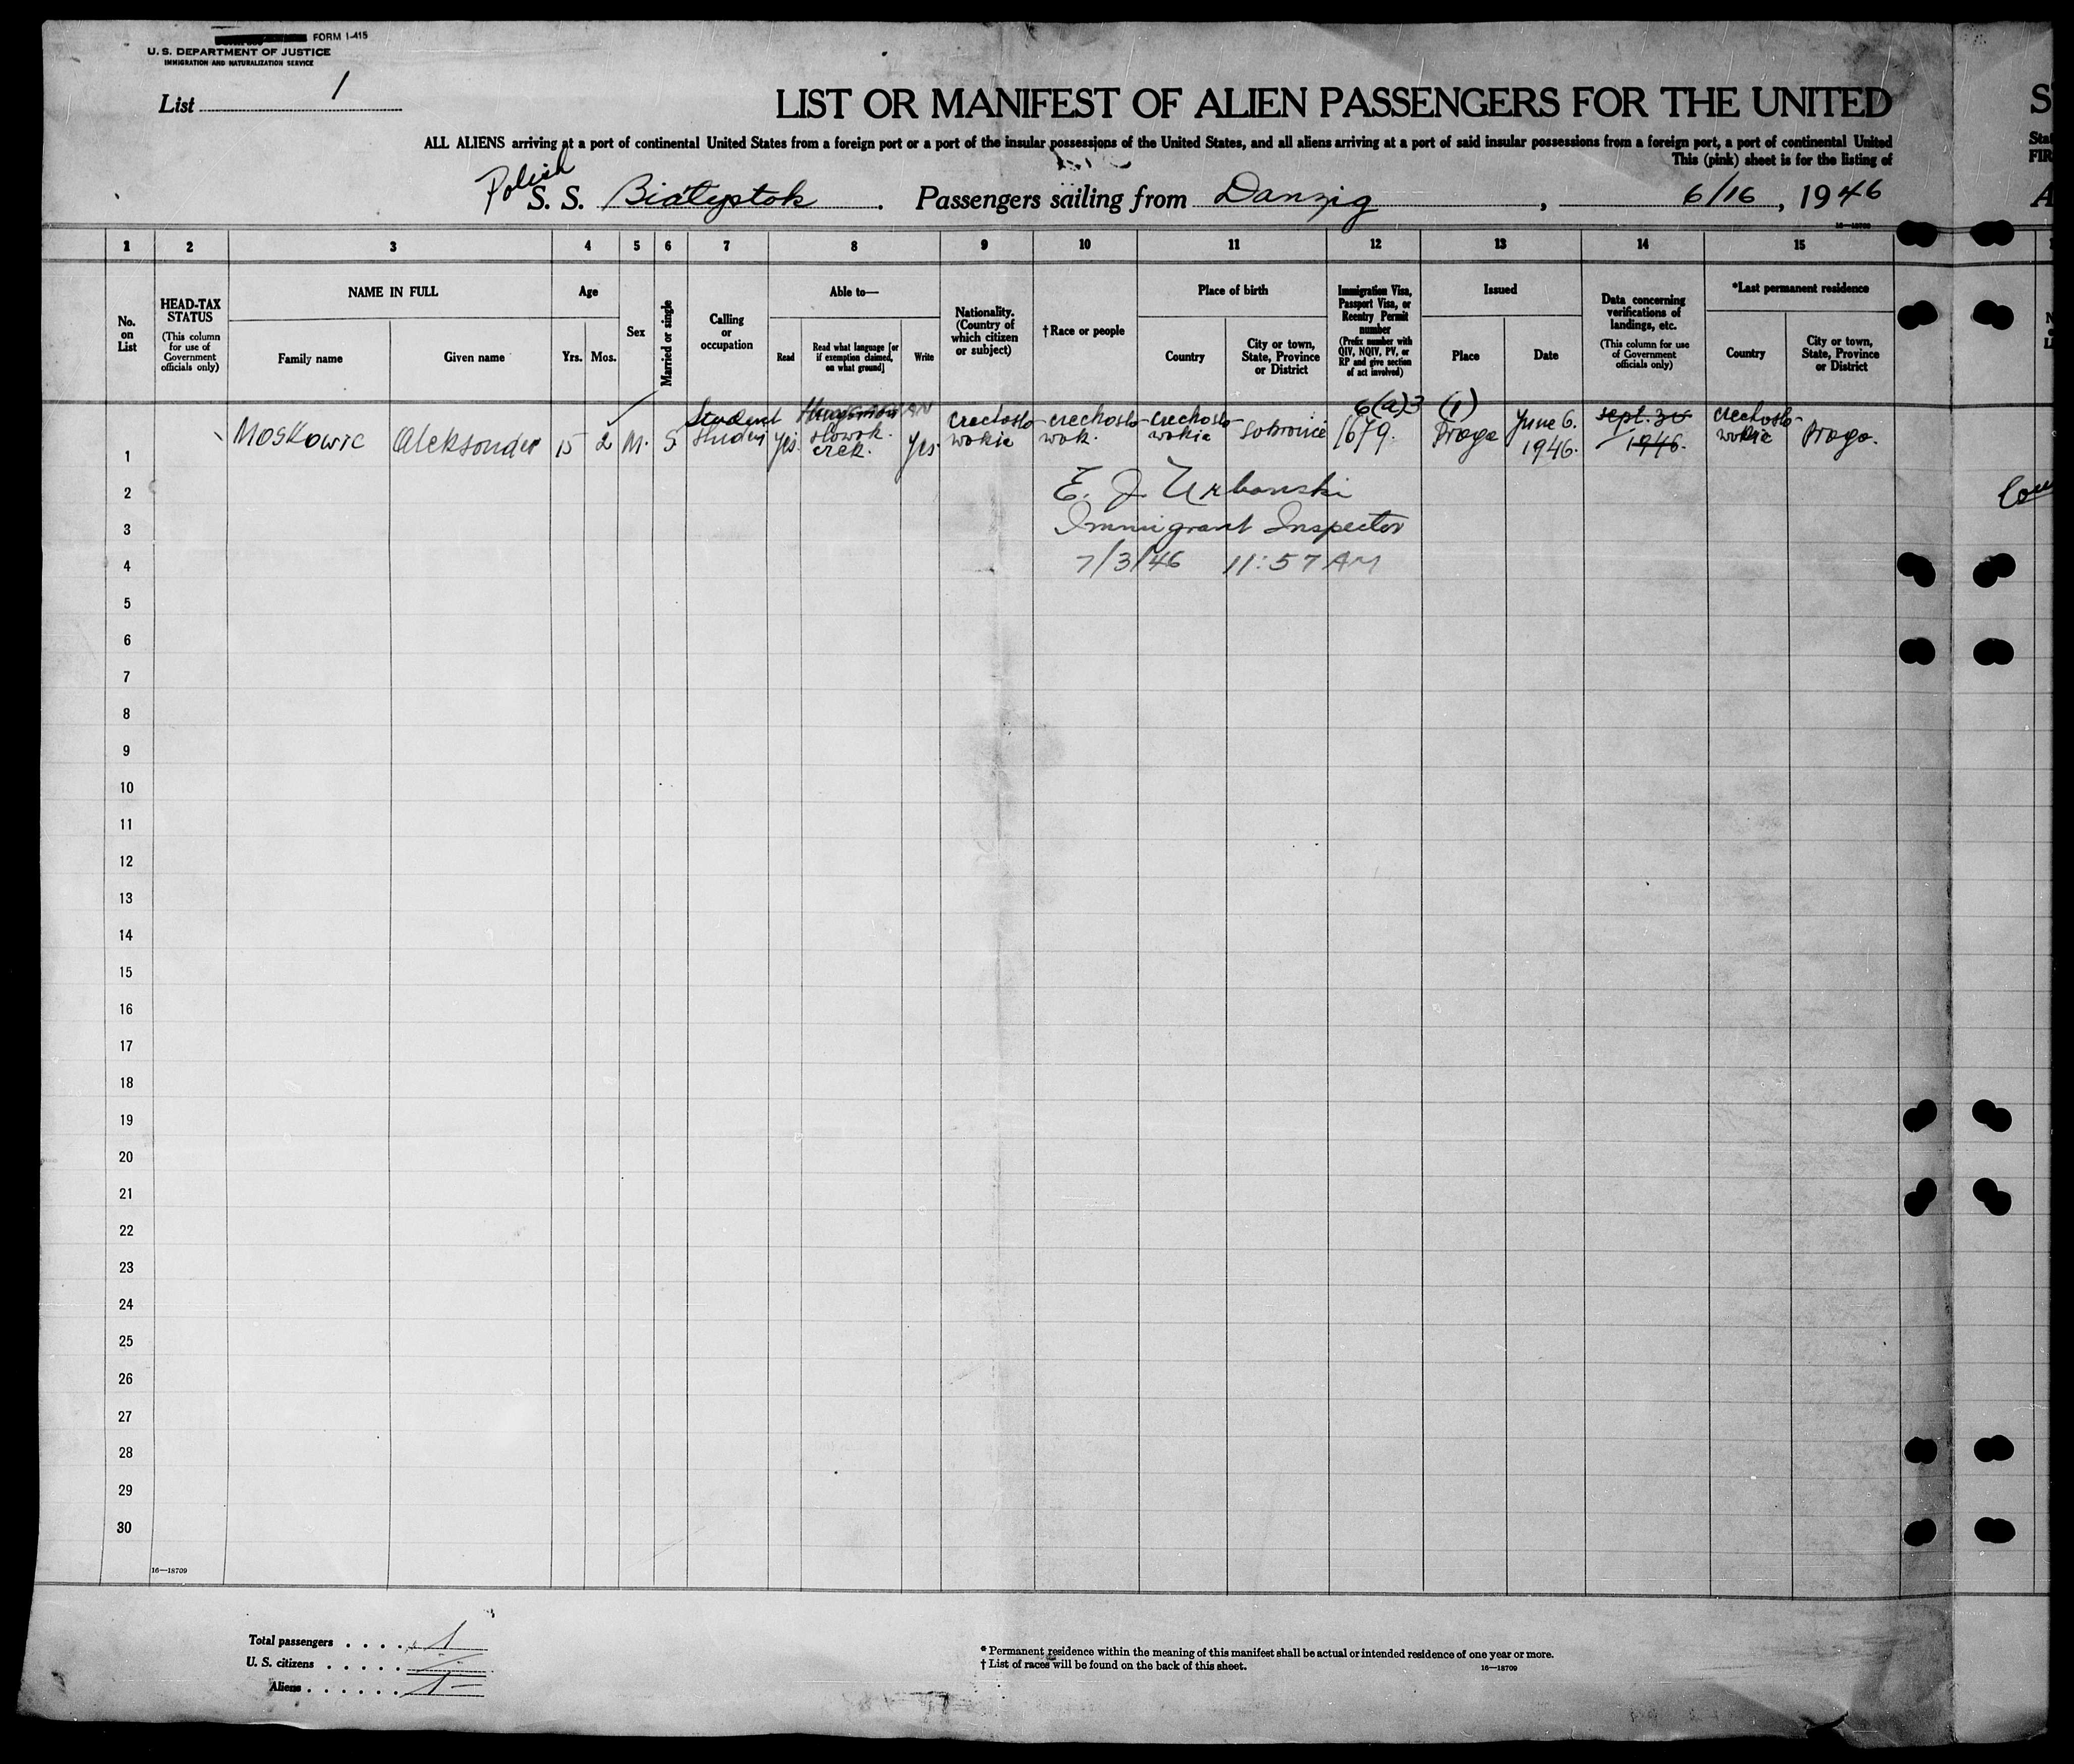 FORM I-415
U. S. DEPARTMENT OF JUSTICE
IMMIGRATION AND NATURALIZATION SERVICE
List 1
LIST OR MANIFEST OF ALIEN PASSENGERS FOR THE UNITED
S
ALL ALIENS arriving at a port of continental United States from a foreign port or a port of the insular possessions of the United States, and all aliens arriving at a port of said insular possessions from a foreign port, a port of continental United
Stat
This (pink) sheet is for the listing of
FIR
Polish
S. S. Białystok . Passengers sailing from Danzig , 6/16 , 1946
A
16—18709
1 2 3 4 5 6 7 8 9 10 11 12 13 14 15
No. on List
HEAD-TAX STATUS
(This column for use of Government officials only)
NAME IN FULL
Family name
Given name
Age
Yrs.
Mos.
Sex
Married or single
Calling or occupation
Able to—
Read
Read what language [or if exemption claimed, on what ground]
Write
Nationality. (Country of which citizen or subject)
†Race or people
Place of birth
Country
City or town, State, Province or District
Immigration Visa, Passport Visa, or Reentry Permit number
(Prefix number with QIV, NQIV, PV, or RP and give section of act involved)
Issued
Place
Date
Data concerning verifications of landings, etc.
(This column for use of Government officials only)
*Last permanent residence
Country
City or town, State, Province or District
Student 6(a)3 (1)
1 Moskowic Aleksander 15 2 M. S student yes. slowok. czek. yes. czechoslo-wokia czechoslo-wok. czechoslo-wokia Sobrance 1679. Praga June 6. 1946. sept. 30 1946. czechoslo-wokia Praga.
2 E. J. Urbanski
3 Immigrant Inspector
4 7/3/46 11:57 AM
5
6
7
8
9
10
11
12
13
14
15
16
17
18
19
20
21
22
23
24
25
26
27
28
29
30
16—18709
Total passengers . . . . 1
U. S. citizens . . . . . —
Aliens . . . . . . 1 —
* Permanent residence within the meaning of this manifest shall be actual or intended residence of one year or more.
† List of races will be found on the back of this sheet.
16—18709